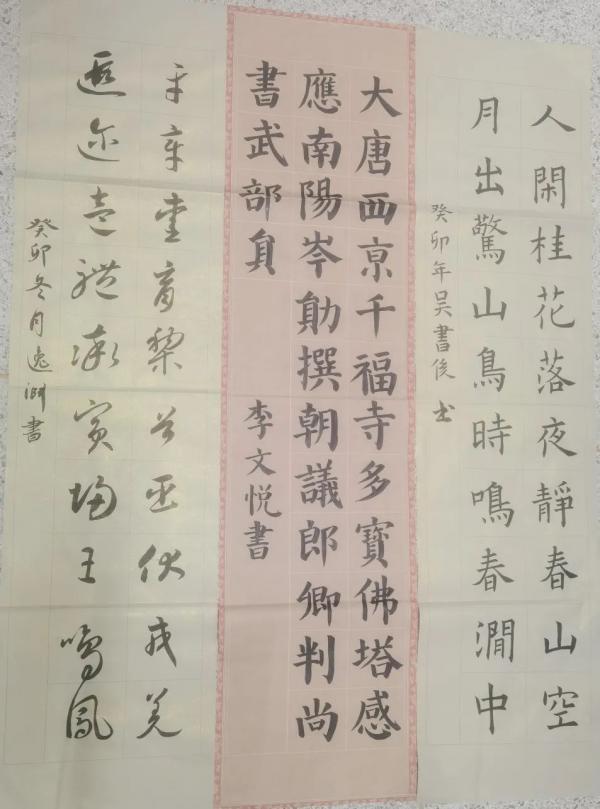 人閑桂花落夜靜春山空
月出驚山鳥時鳴春澗中
癸卯年吴書俊书
大唐西京千福寺多寶佛塔感
應南陽岑勛撰朝議郎卿判尚
書武部員
李文悦書
平章愛育黎首臣伏戎羌
遐迩壹體率賓歸王鳴鳳
癸卯冬月逸洲書